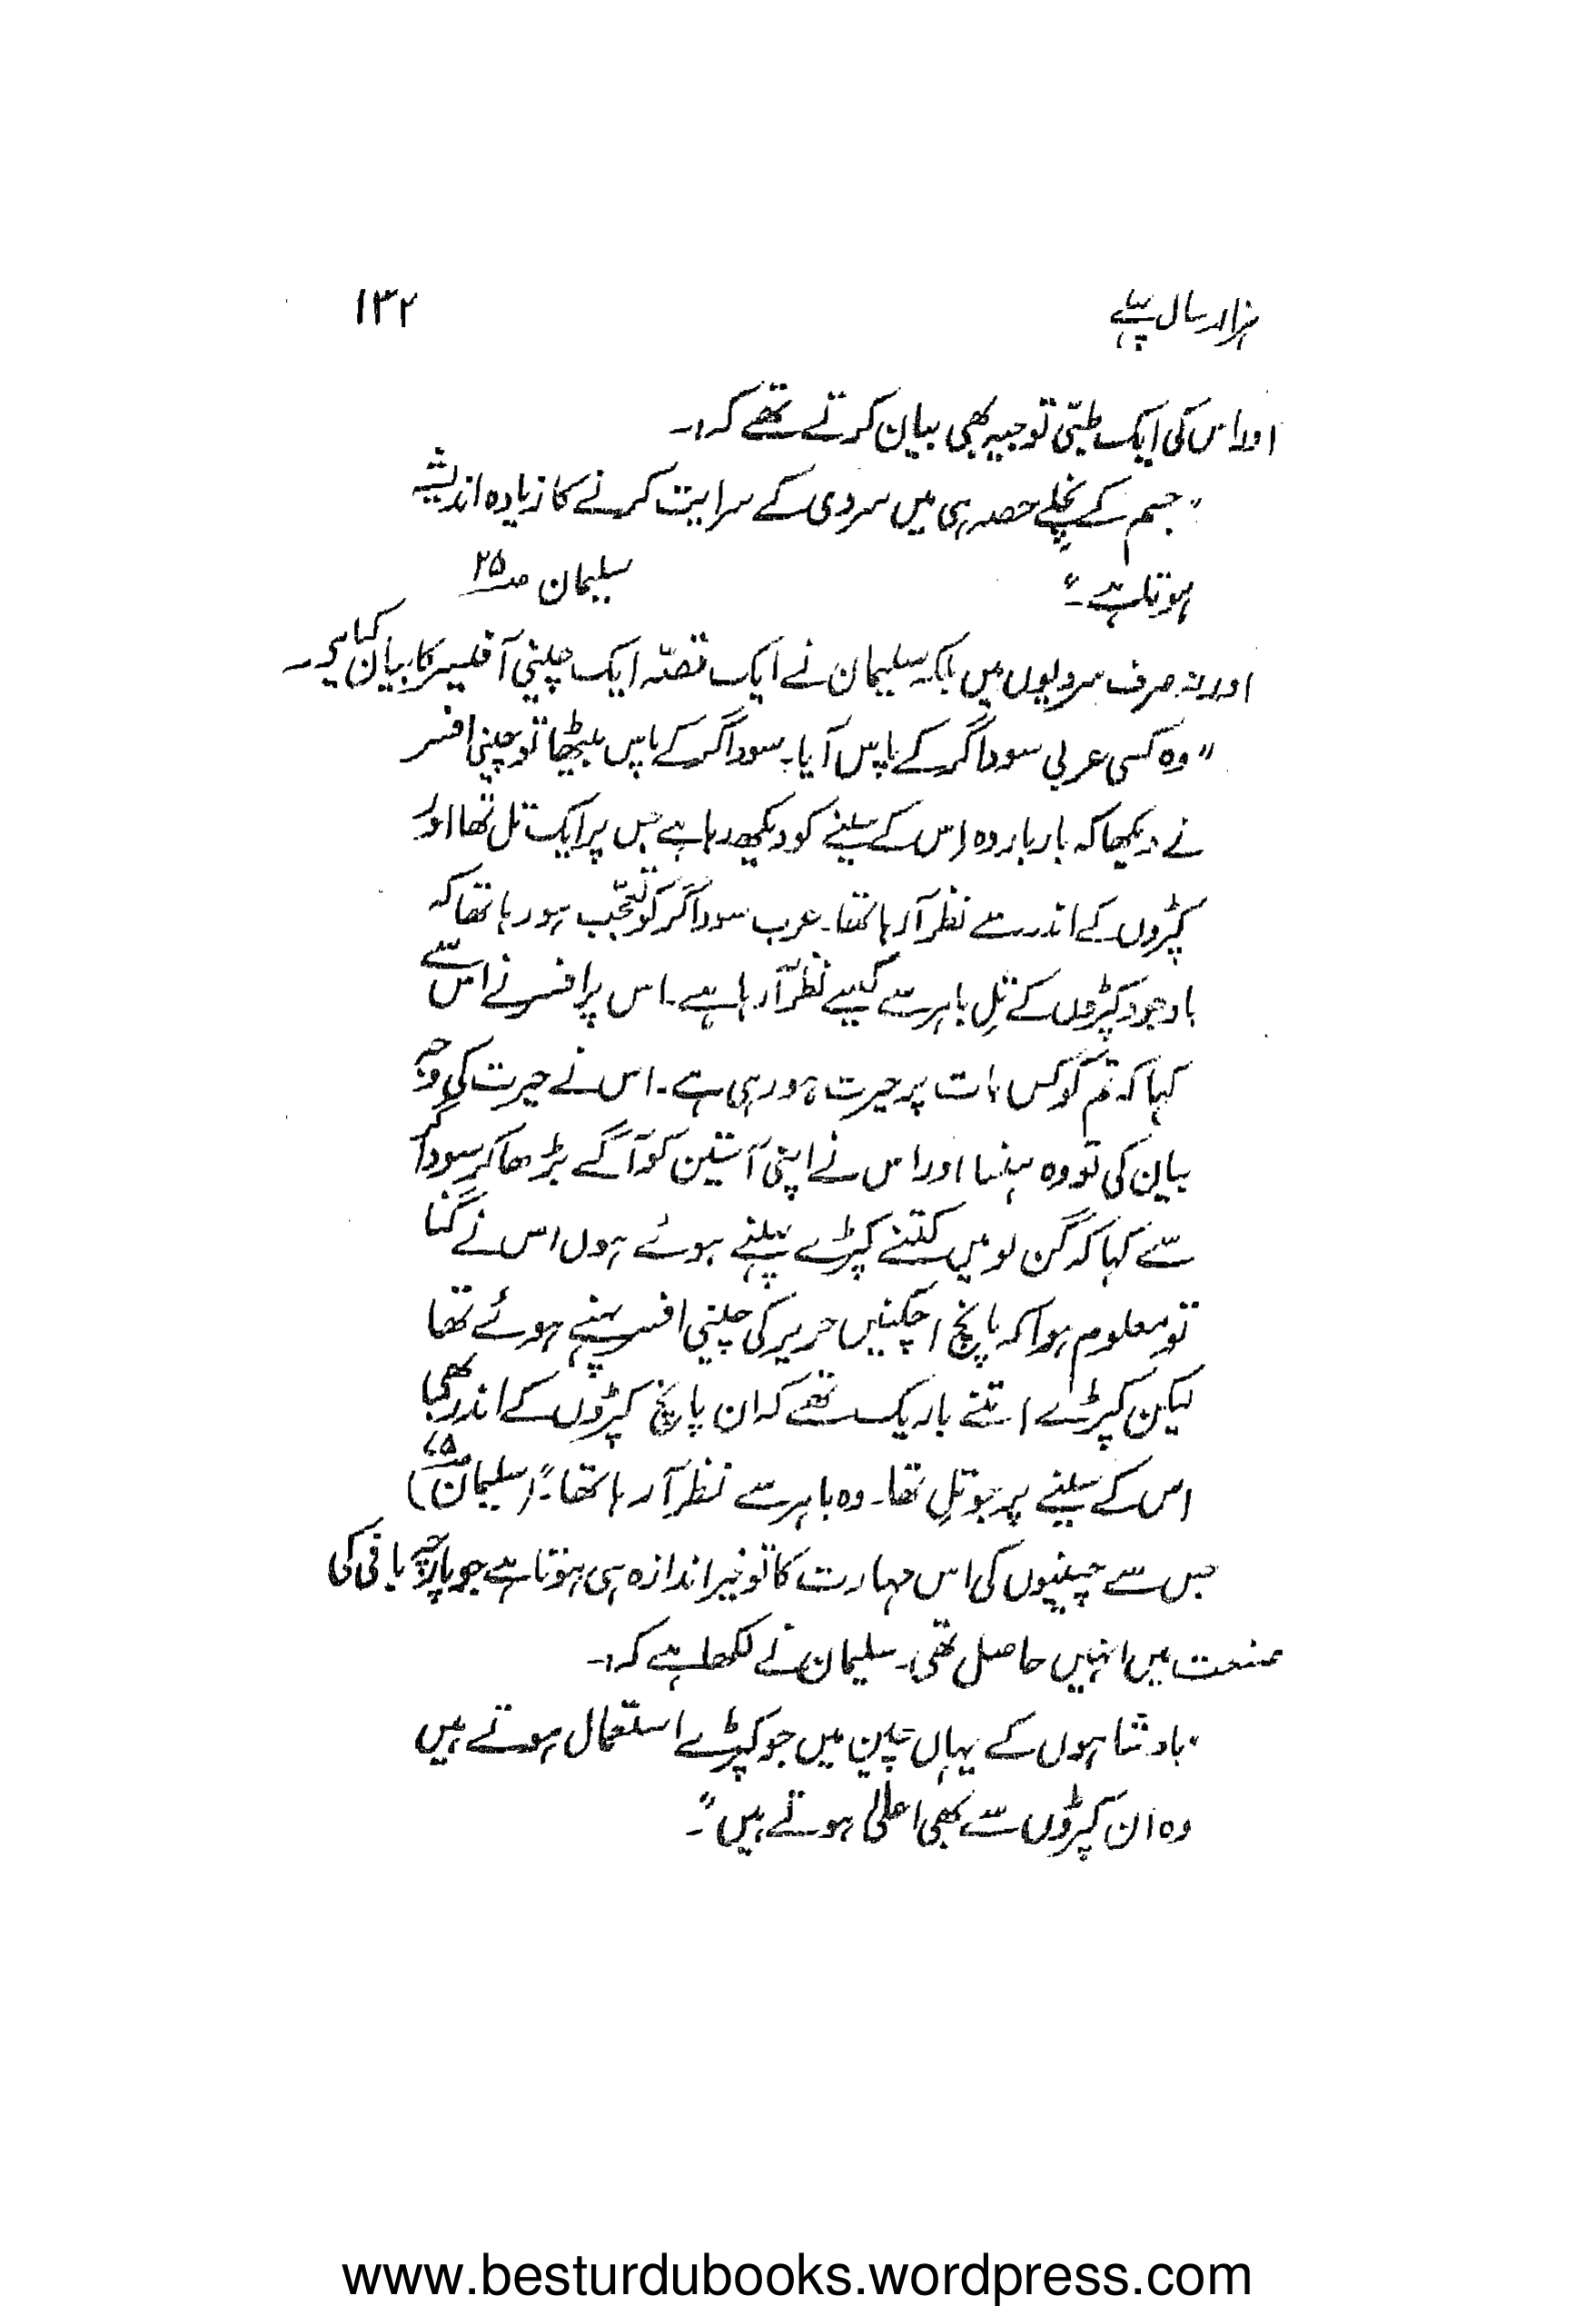 ہزار سال پہلے
۱۳۲
اور اس کی ایک طبّی توجیہ بھی بیان کرتے تھے کہ:۔
"جسم کے نچلے حصہ ہی میں سردی کے سرایت کرنے کا زیادہ اندیشہ
ہوتا ہے۔" سلیمان صـ۲۵
اور نہ صرف سردیوں میں بلکہ سلیمان نے ایک قصّہ ایک چینی آفیسر کا بیان کیا ہے۔
"وہ کسی عربی سوداگر کے پاس آیا۔ سوداگر کے پاس بیٹھا تو چینی افسر
نے دیکھا کہ بار بار وہ اس کے سینے کو دیکھ رہا ہے جس پر ایک تل تھا اور
کپڑوں کے اندر سے نظر آرہا تھا۔ عرب سوداگر کو تعجّب ہو رہا تھا کہ
باوجود کپڑوں کے تِل باہر سے کیسے نظر آرہا ہے۔ اس پر افسر نے اس سے
کہا کہ تم کو کس بات پر حیرت ہو رہی ہے۔ اس نے حیرت کی وجہ
بیان کی تو وہ ہنسا اور اس نے اپنی آستین کو آگے بڑھا کر سوداگر
سے کہا کہ گن لو میں کتنے کپڑے پہنے ہوئے ہوں اس نے گنا
تو معلوم ہوا کہ پانچ اچکنیں حریر کی چینی افسر پہنے ہوئے تھا
لیکن کپڑے اتنے باریک تھے کہ ان پانچ کپڑوں کے اندر بھی
اس کے سینے پر جو تِل تھا۔ وہ باہر سے نظر آرہا تھا۔" (سلیمان صـ۷۵)
جس سے چینیوں کی اس مہارت کا تو خیر اندازہ ہی ہوتا ہے جو پارچہ بافی کی
صنعت میں انہیں حاصل تھی۔ سلیمان نے لکھا ہے کہ:۔
"بادشاہوں کے یہاں چین میں جو کپڑے استعمال ہوتے ہیں
وہ ان کپڑوں سے بھی اعلیٰ ہوتے ہیں"۔
www.besturdubooks.wordpress.com